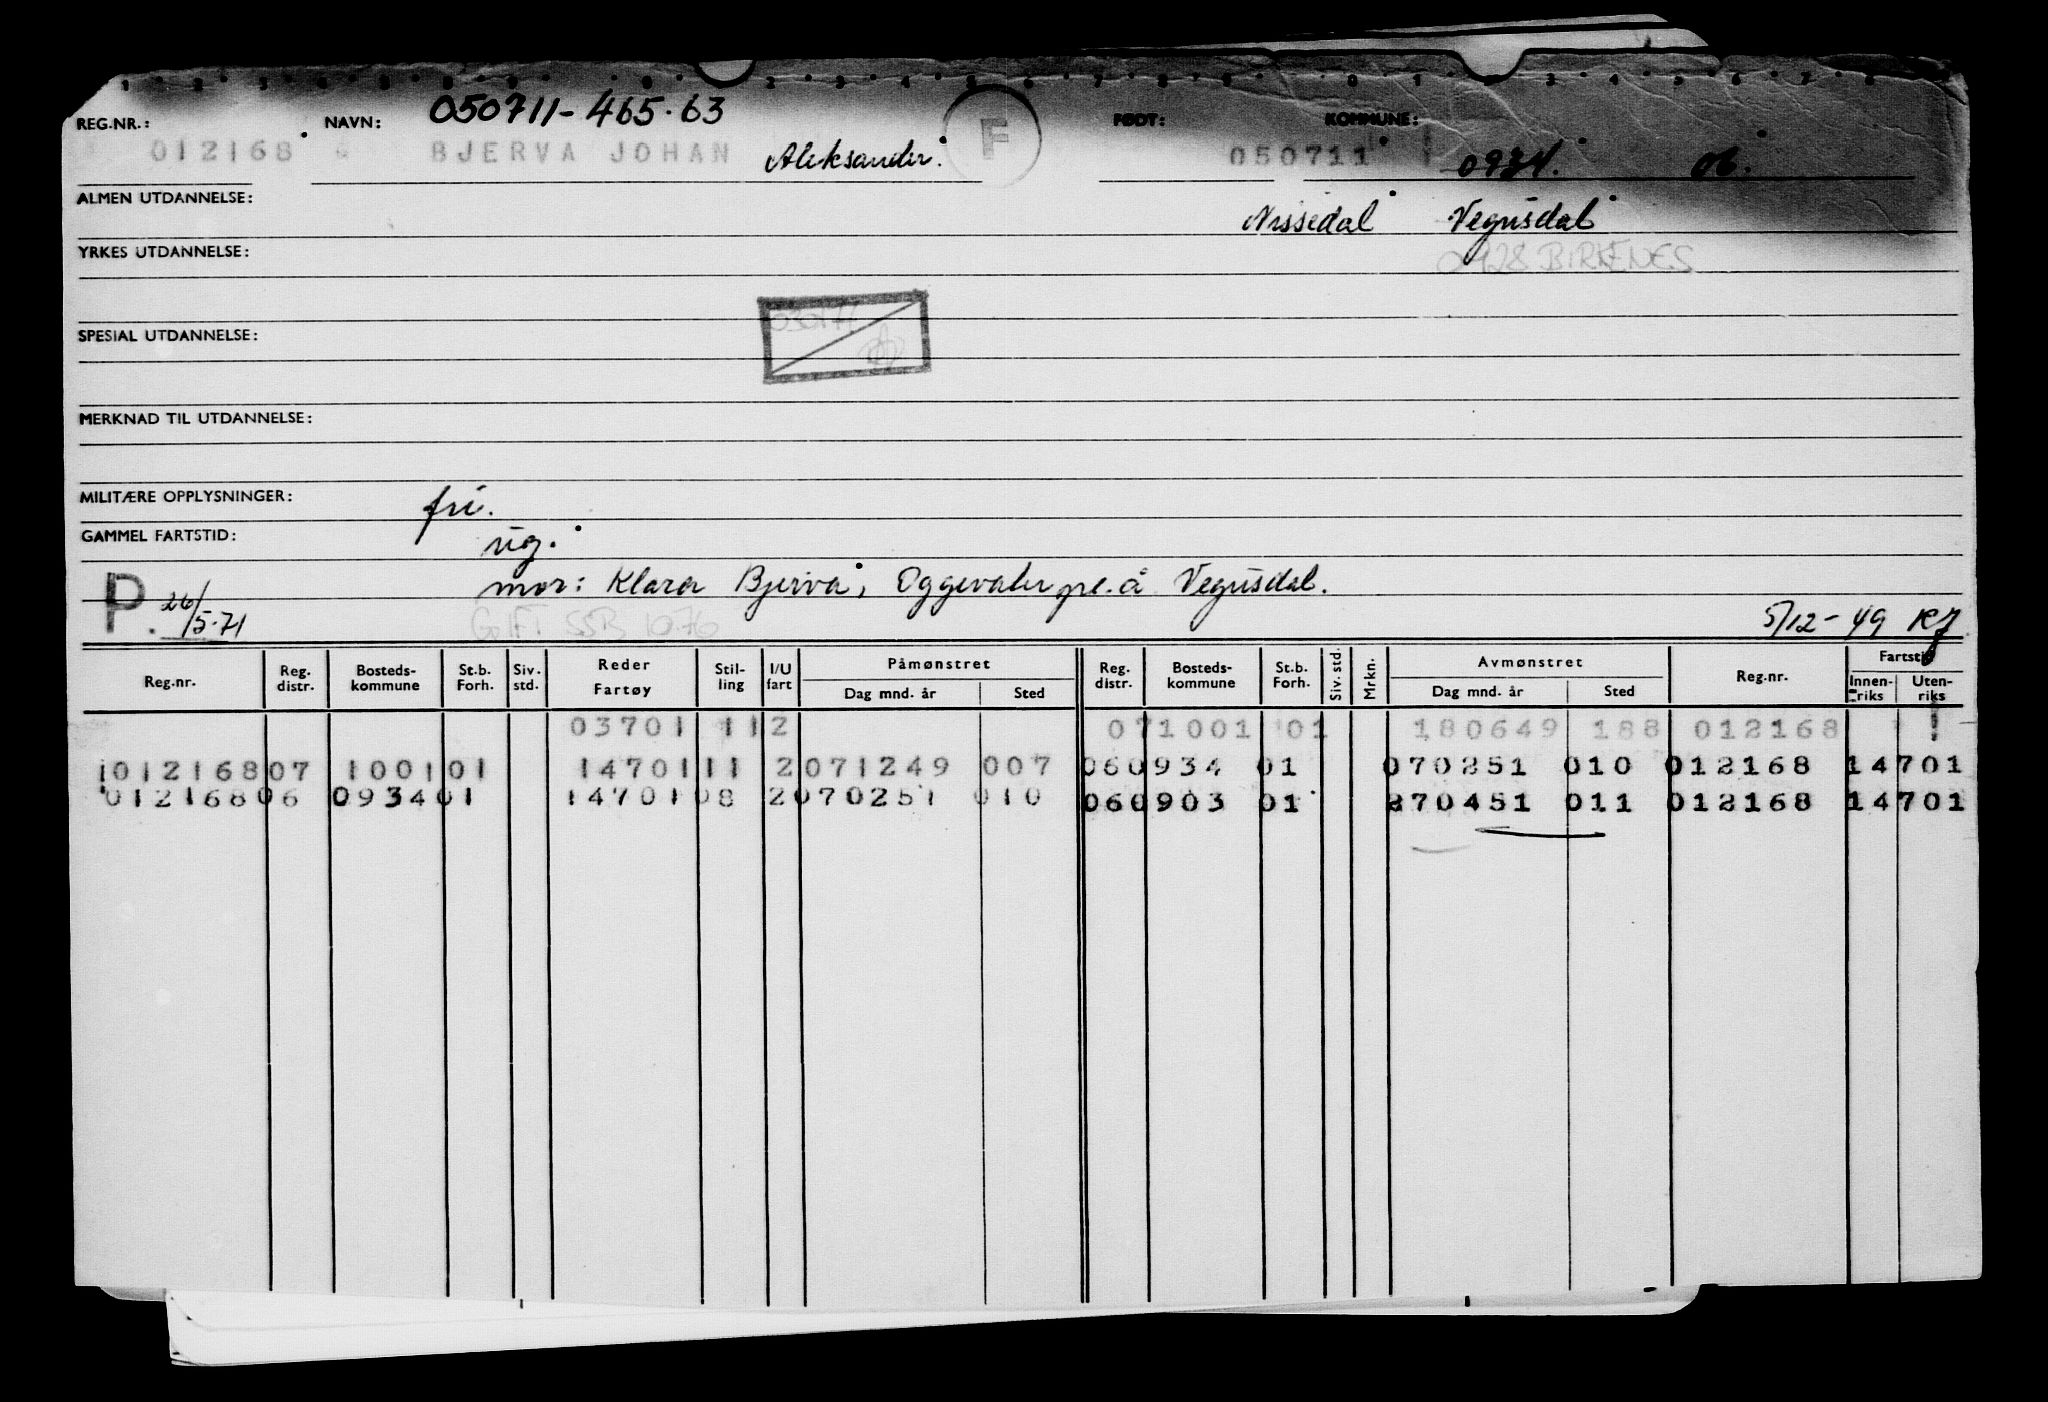 REG.NR.: NAVN: 050711-465.63 F FØDT: KOMMUNE:
012168 BJERVA JOHAN Aleksander. 050711 0934. 06.
ALMEN UTDANNELSE: Nissedal Vegusdal
YRKES UTDANNELSE: 0928 BIRKENES
SPESIAL UTDANNELSE:
MERKNAD TIL UTDANNELSE:
MILITÆRE OPPLYSNINGER: fri.
GAMMEL FARTSTID: ug.
mor: Klara Bjerva, Oggevatn pr.å Vegusdal.
P. 26/5-71 GIFT SSB 10.76 5/12-49 KJ
Reg.nr. Reg. distr. Bosteds-kommune St.b. Forh. Siv. std. Reder Fartøy Stil-ling I/U fart Påmønstret Dag mnd. år Sted Reg. distr. Bosteds-kommune St.b. Forh. Siv. std. Mrkn. Avmønstret Dag mnd. år Sted Reg.nr. Fartstid Innen-riks Uten-riks
03701 11 2 071001 01 180649 188 012168
012168 07 1001 01 14701 11 2 071249 007 060934 01 070251 010 012168 14701
012168 06 0934 01 14701 08 2 070251 010 060903 01 270451 011 012168 14701